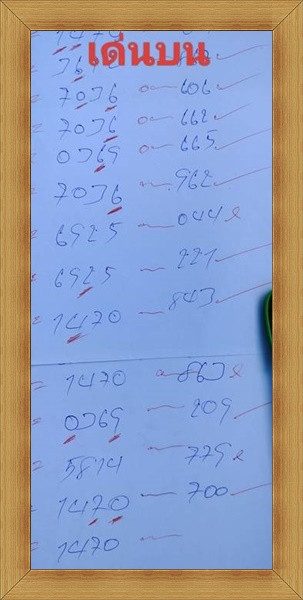 เด่นบน
7036 606
7036 662
0369 665
7036 962
6925 044
6925 221
1470 843
1470 863
0369 209
5814 779
1470 700
1470